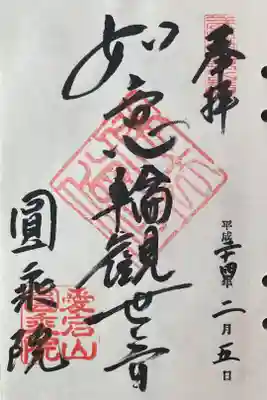 奉拝
平成二十四年二月五日
如意輪観世音
圓乗院
愛宕山
圓乗院